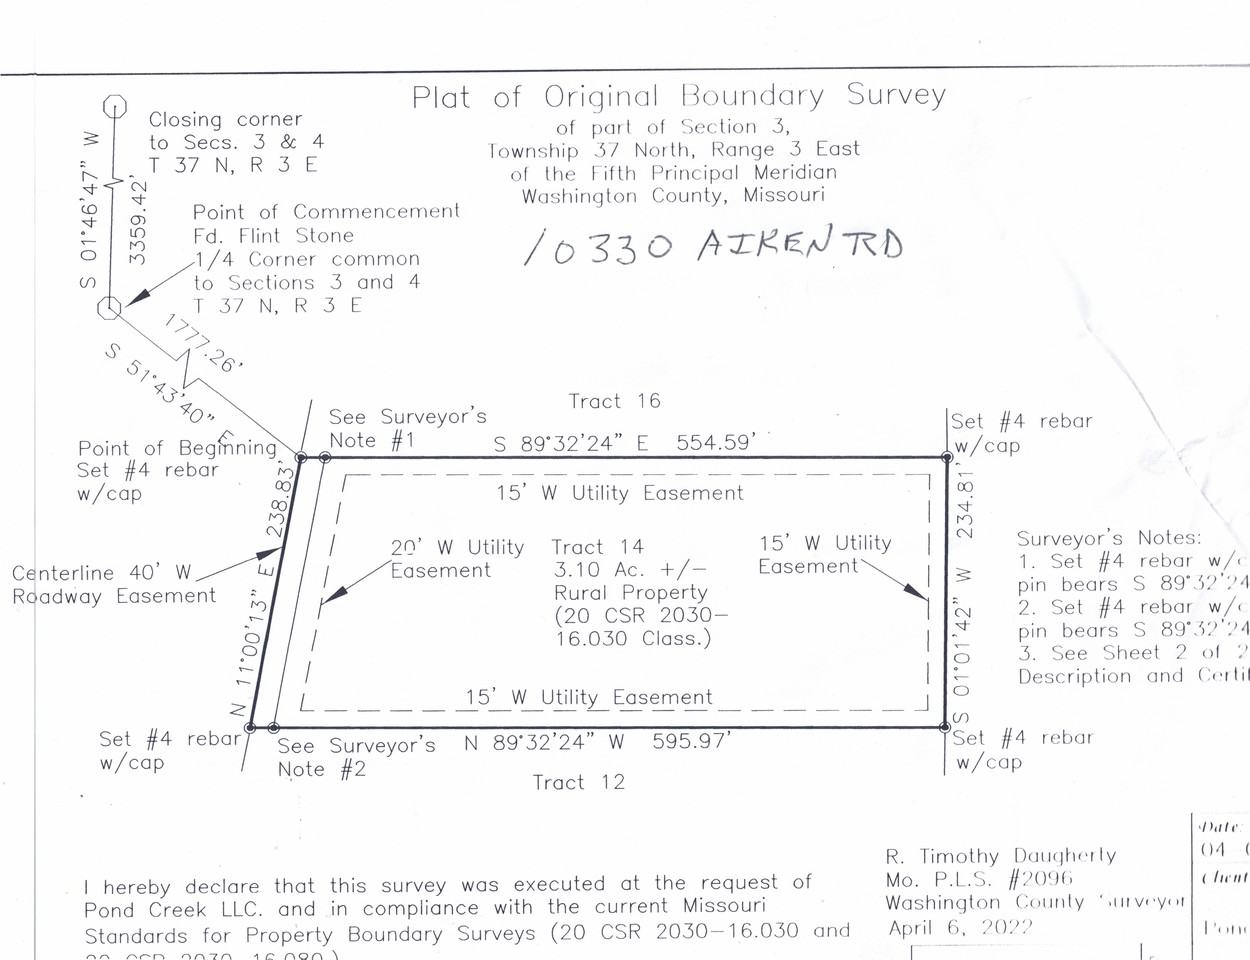 Plat of Original Boundary Survey
of part of Section 3,
Township 37 North, Range 3 East
of the Fifth Principal Meridian
Washington County, Missouri
10330 AIKEN RD
Closing corner
to Secs. 3 & 4
T 37 N, R 3 E
S 01°46'47" W
3359.42'
Point of Commencement
Fd. Flint Stone
1/4 Corner common
to Sections 3 and 4
T 37 N, R 3 E
1777.26'
S 51°43'40" E
Tract 16
See Surveyor's
Note #1
S 89°32'24" E 554.59'
Set #4 rebar
w/cap
Point of Beginning
Set #4 rebar
w/cap
15' W Utility Easement
N 11°00'13" E 238.83'
S 01°01'42" W 234.81'
20' W Utility
Easement
Tract 14
3.10 Ac. +/-
Rural Property
(20 CSR 2030-
16.030 Class.)
15' W Utility
Easement
Centerline 40' W
Roadway Easement
Surveyor's Notes:
1. Set #4 rebar w/c
pin bears S 89°32'24
2. Set #4 rebar w/c
pin bears S 89°32'24
3. See Sheet 2 of 2
Description and Certif
15' W Utility Easement
Set #4 rebar
w/cap
See Surveyor's
Note #2
N 89°32'24" W 595.97'
Set #4 rebar
w/cap
Tract 12
I hereby declare that this survey was executed at the request of
Pond Creek LLC. and in compliance with the current Missouri
Standards for Property Boundary Surveys (20 CSR 2030-16.030 and
20 CSR 2030-16.080.)
R. Timothy Daugherty
Mo. P.L.S. #2096
Washington County Surveyor
April 6, 2022
Date:
04
Client